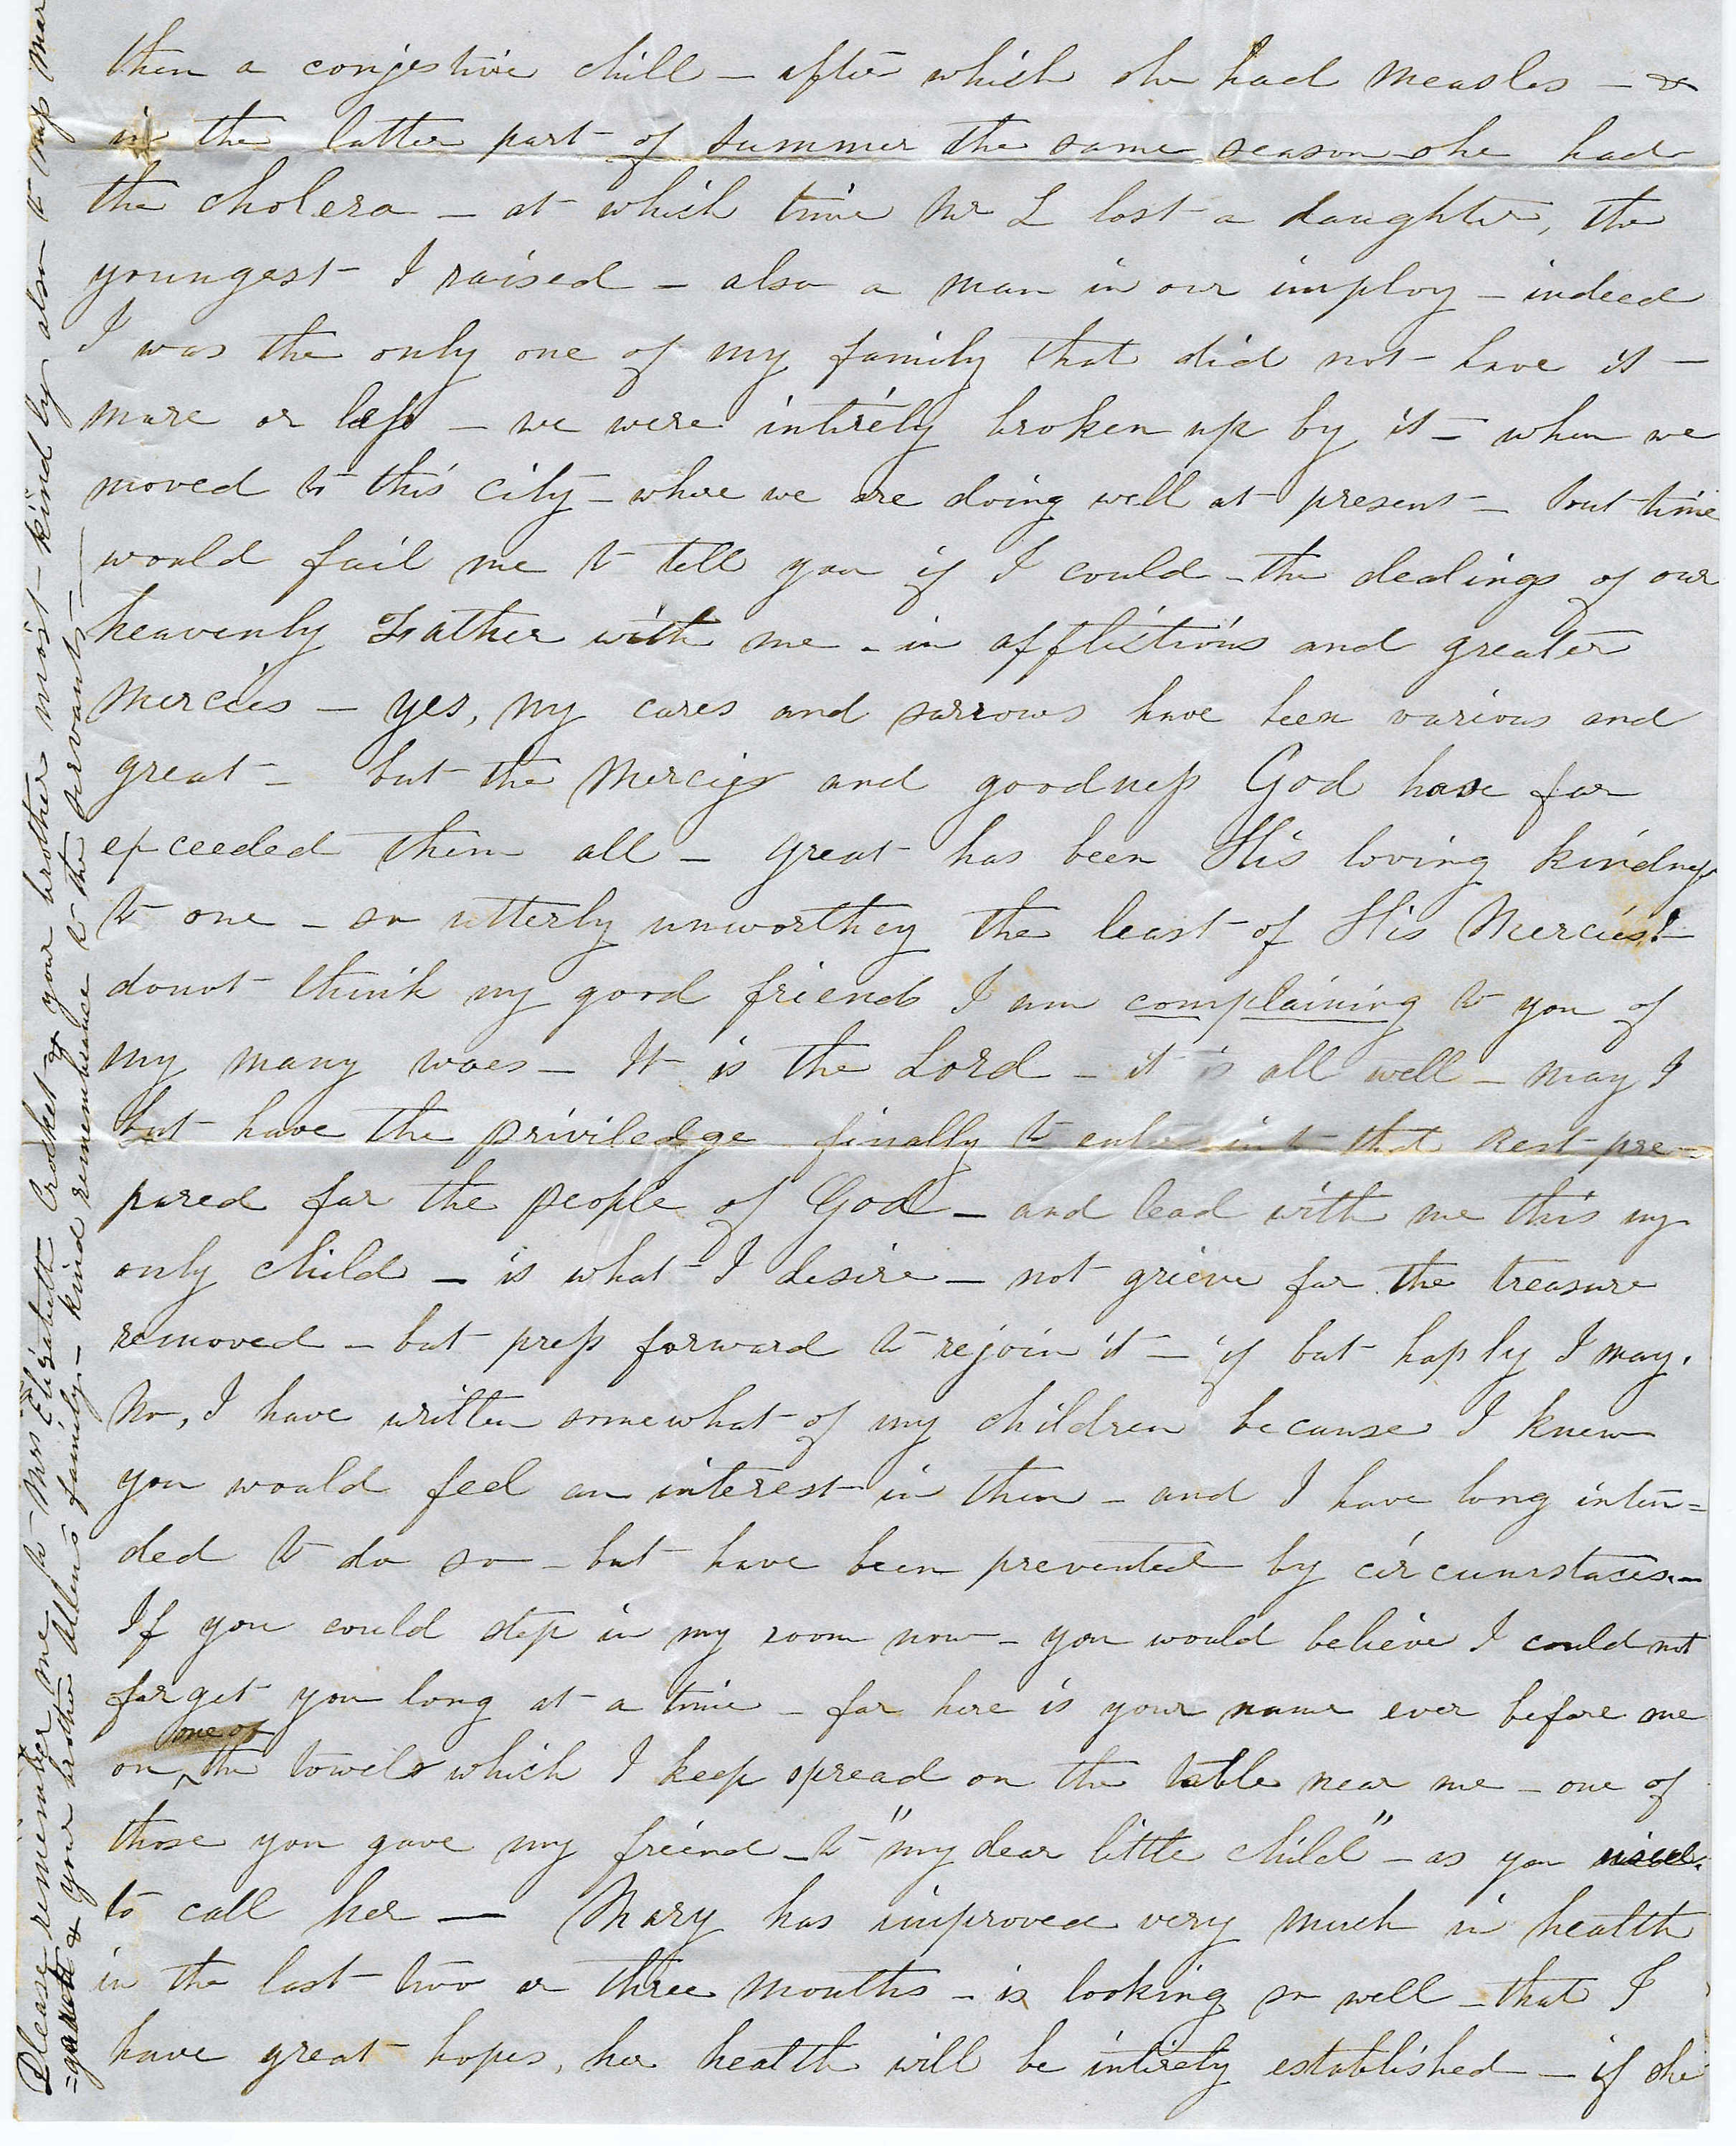 then a conjestive chill – after which she had measles – &
in the latter part of summer the same season she had
the cholera – at which time Mr L lost a daughter, the
youngest I raised – also a man in our imploy – indeed
I was the only one of my family that did not have it –
more or less – we were intirely broken up by it – when we
moved to this city – where we are doing well at present – but time
would fail me to tell you if I could – the dealings of our
heavenly Father with me – in afflictions and greater
Mercies – yes, my cares and sorrows have been various and
great – but the Mercies and goodness God have far
exceeded them all – great has been His loving kindness
to one – so utterly unworthy the least of His Mercies! –
donot think my good friend I am complaining to you of
my many woes – It is the Lord – it is all well – may I
but have the priviledge finally to enter into that rest pre-
pared for the people of God – and lead with me this my
only child – is what I desire – not grieve for the treasure
removed – but press forward to rejoin it – if but haply I may.
No, I have written somewhat of my children because I knew
you would feel an interest in them – and I have long inten=
ded to do so – but have been prevented by circumstaces. –
If you could step in my room now – you would believe I could not
forget you long at a time – for here is your name ever before me
on ^ one of the towels which I keep spread on the table near me – one of
those you gave my friend – to "my dear little child" – as you used
to call her — Mary has improved very much in health
in the last two or three months – is looking so well – that I
have great hopes, her health will be intirely established – if she
Please remember me to Mrs Elizabeth Crocket & your brother most kindly also to my Mar
=garett & your brother Allen's family – kind remembrance to the servants —